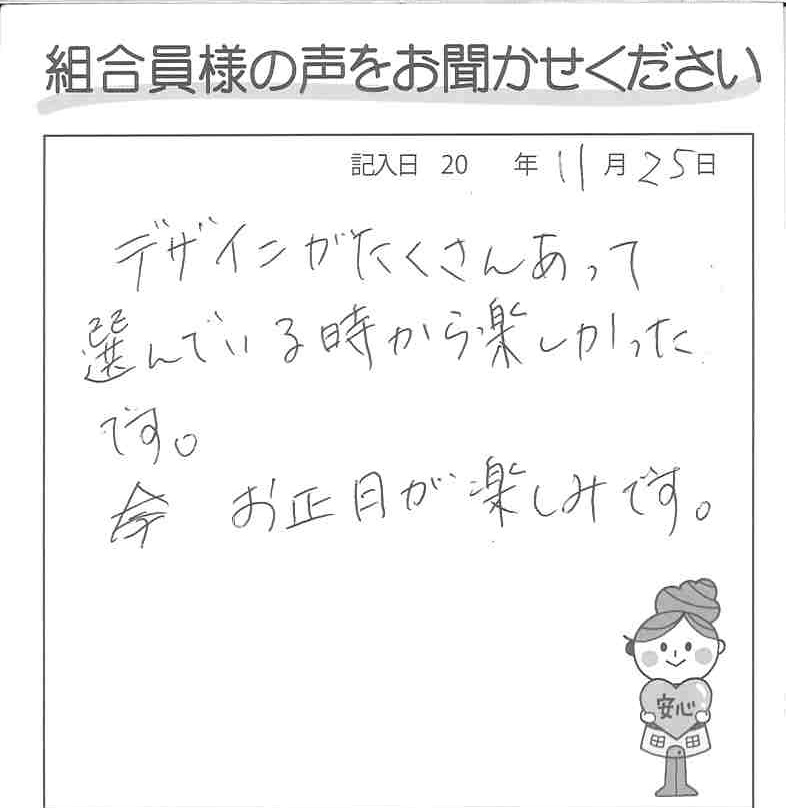 組合員様の声をお聞かせください
記入日 20 年 11 月 25 日
デザインがたくさんあって
選んでいる時から楽しかった
です。
お正月が楽しみです。
安心